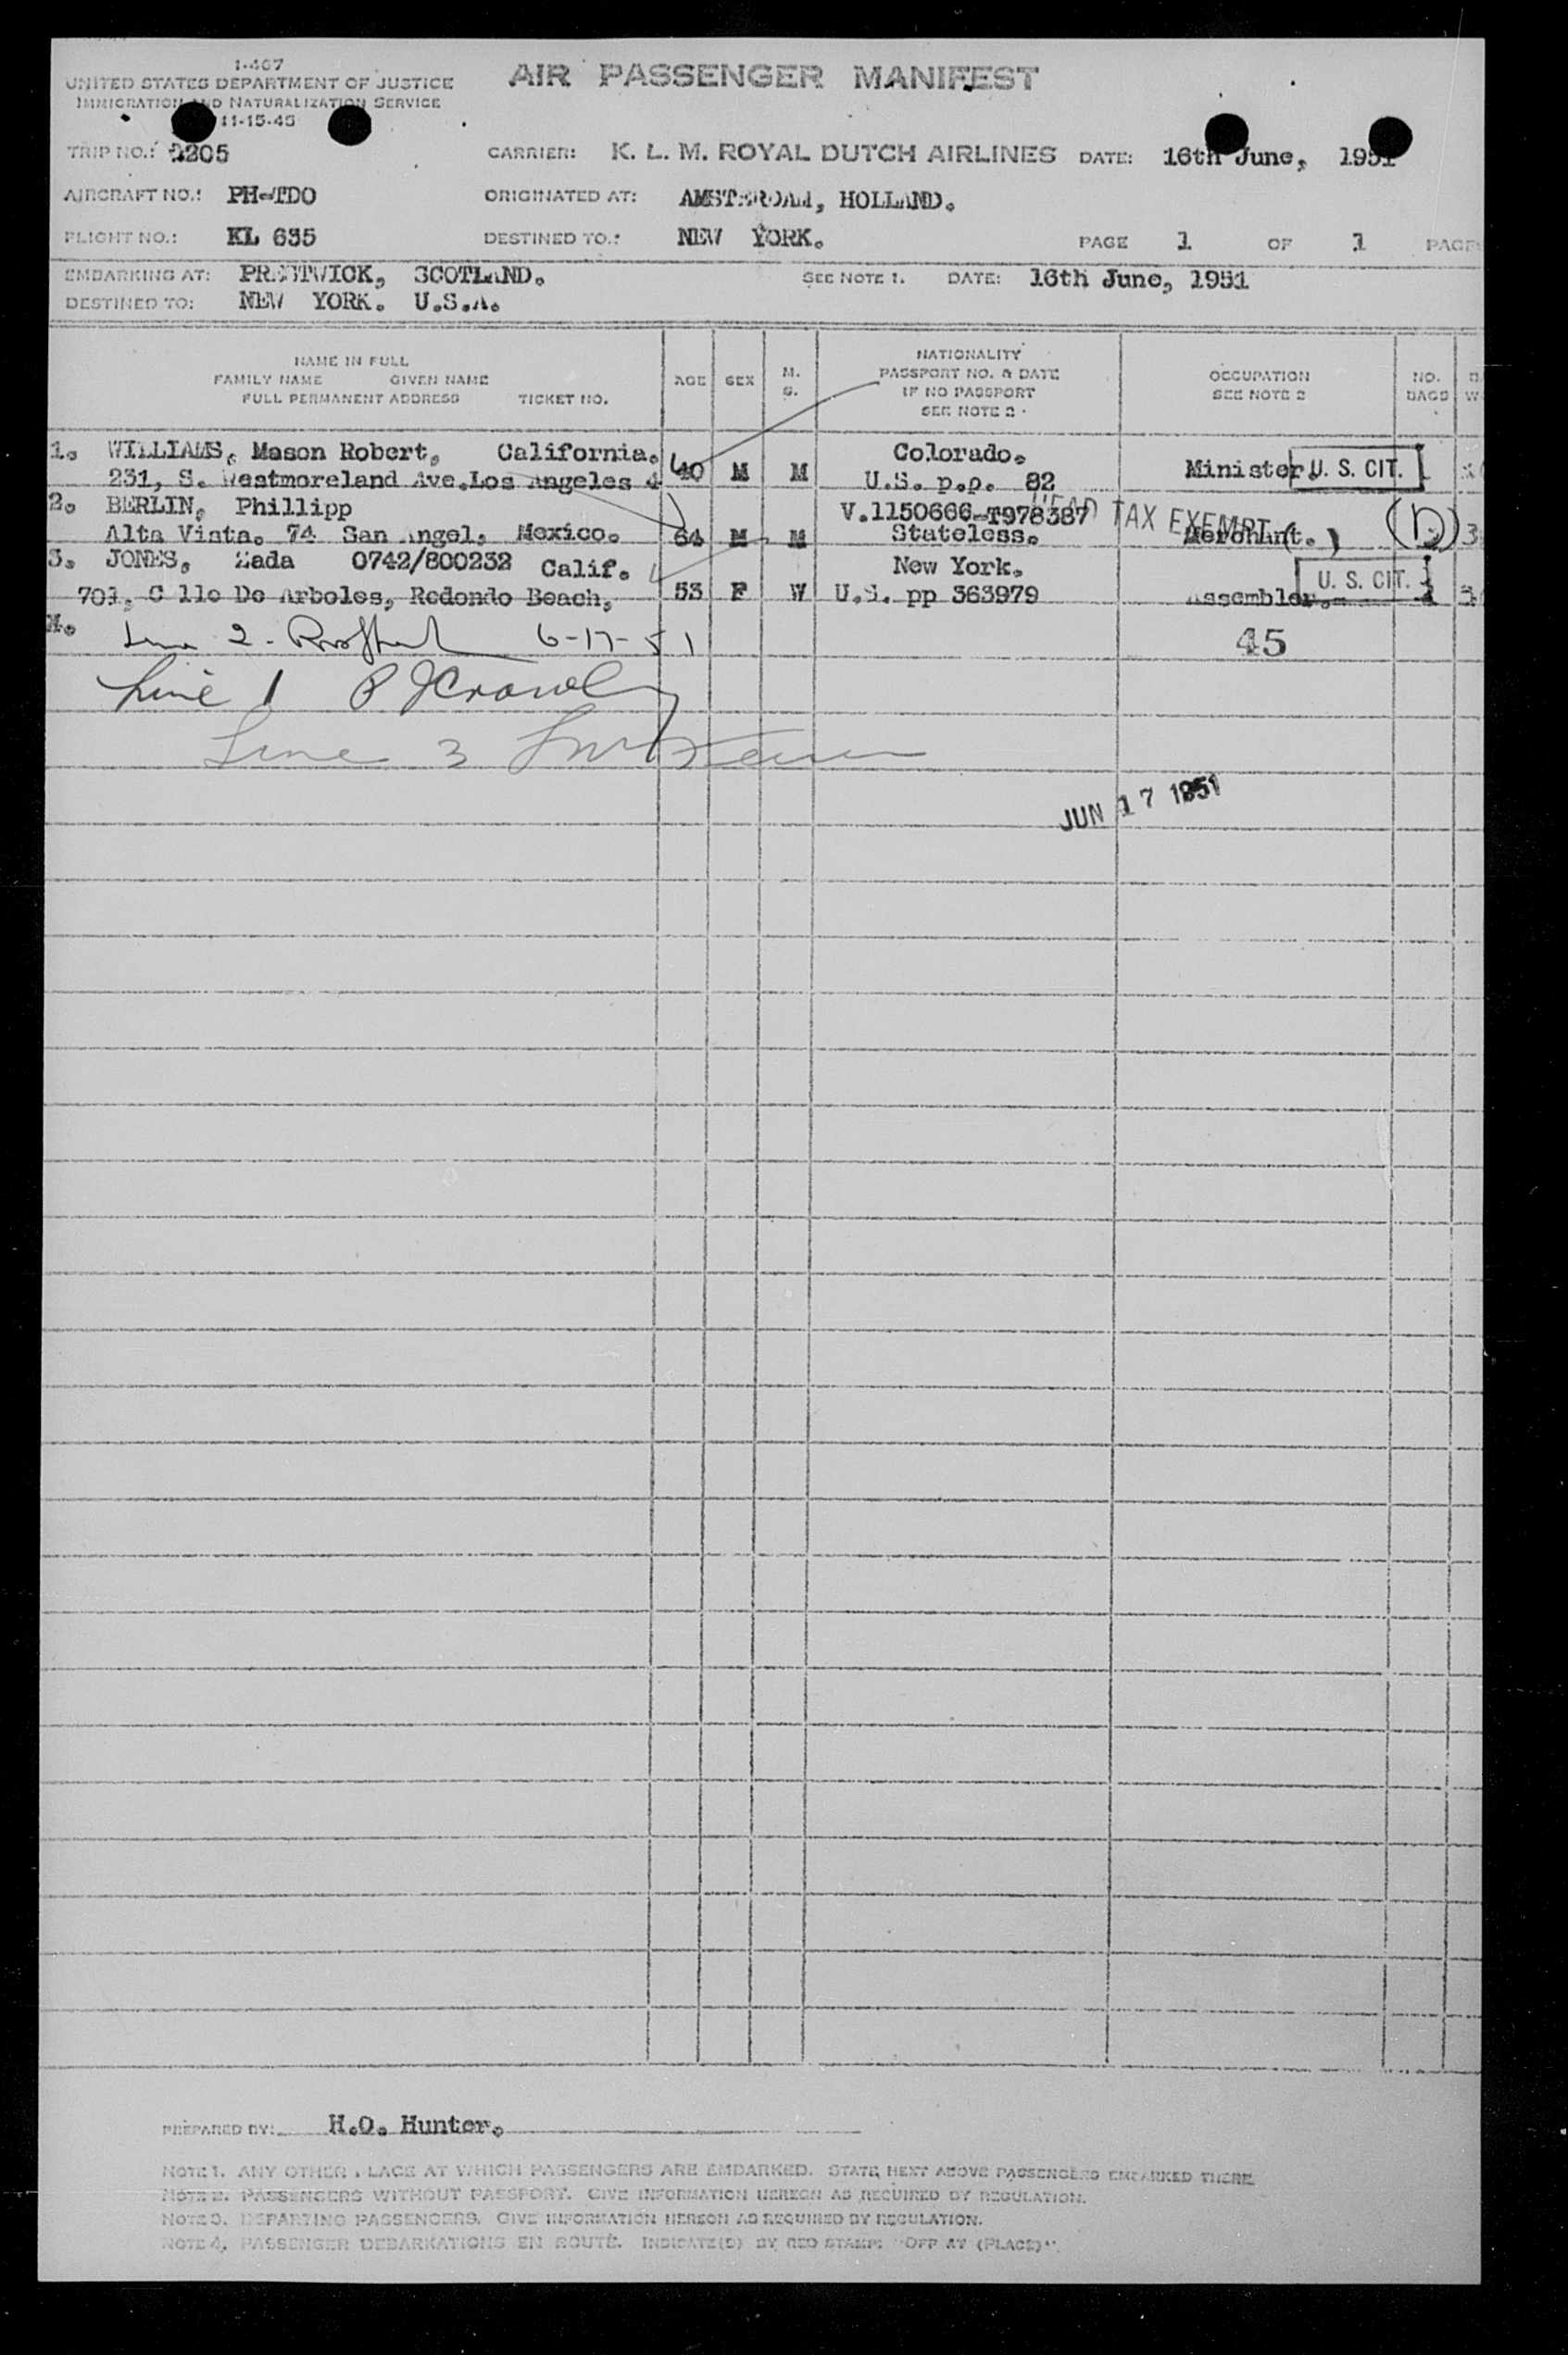 I-467
UNITED STATES DEPARTMENT OF JUSTICE
IMMIGRATION AND NATURALIZATION SERVICE
11-15-45
AIR PASSENGER MANIFEST
TRIP NO.: 2205 CARRIER: K. L. M. ROYAL DUTCH AIRLINES DATE: 16th June, 1951
AIRCRAFT NO.: PH-TDO ORIGINATED AT: AMSTERDAM, HOLLAND.
FLIGHT NO.: KL 635 DESTINED TO.: NEW YORK. PAGE 1 OF 1 PAGE
EMBARKING AT: PRESTWICK, SCOTLAND. SEE NOTE 1. DATE: 16th June, 1951
DESTINED TO: NEW YORK. U.S.A.
NAME IN FULL
FAMILY NAME GIVEN NAME
FULL PERMANENT ADDRESS TICKET NO.
AGE SEX M. S.
NATIONALITY
PASSPORT NO. & DATE
IF NO PASSPORT
SEE NOTE 2
OCCUPATION
SEE NOTE 2
NO. BAGS
1. WILLIAMS, Mason Robert, California. Colorado.
231, S. Westmoreland Ave. Los Angeles 4 40 M M U.S. p.p. 82 Minister. U. S. CIT. 1
2. BERLIN, Phillipp V.1150666-T978387 HEAD TAX EXEMPT (
Alta Vista. 74 San Angel, Mexico. 64 M M Stateless. Merchant. ) 3
3. JONES, Zada 0742/800232 Calif. New York. U. S. CIT.
701, Calle De Arboles, Redondo Beach, 53 F W U.S. pp 363979 Assembler. 1 3
Line 2 - 6-17-51
45
Line 1
Line 3
JUN 17 1951
PREPARED BY: H.O. Hunter.
NOTE 1. ANY OTHER PLACE AT WHICH PASSENGERS ARE EMBARKED. STATE NEXT ABOVE PASSENGERS EMBARKED THERE.
NOTE 2. PASSENGERS WITHOUT PASSPORT. GIVE INFORMATION HEREON AS REQUIRED BY REGULATION.
NOTE 3. DEPARTING PASSENGERS. GIVE INFORMATION HEREON AS REQUIRED BY REGULATION.
NOTE 4. PASSENGER DEBARKATIONS EN ROUTE. INDICATE(D) BY RED STAMP: "OFF AT (PLACE)".